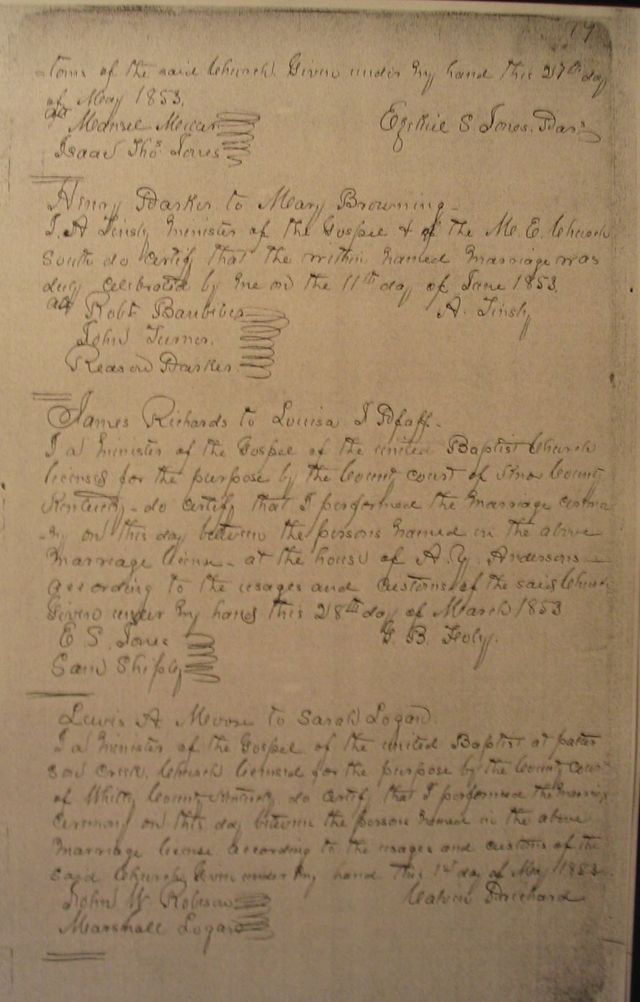 19
-toms of the said Church. Given under my hand this 27th day
of May 1853.
att Mansel
Ezekiel S Jones. Pas.
Isaac Thos. Jones
Henry Parker to Mary Browning
I. A Tinsly minister of the Gospel & of the M. E. Church
South do certify that the within named marriage was
duly celebrated by me on the 11th day of June 1853.
att Robt
A. Tinsly
John Turner.
Reason Parker.
James Richards to Louisa J Pfaff.
I a minister of the Gospel of the united Baptist Church
licensed for the purpose by the County court of Knox County
Kentucky - do certify that I performed the marriage cerimo
-ny on this day between the persons named in the above
marriage license - at the house of A. Y. Andersons
according to the usages and customs of the said Church
Given under my hand this 28th day of March 1853
E. S. Jones
G. B. Foley.
Sam Shiply
Lewis A Moore to Sarah Logan.
I a minister of the Gospel of the united Baptist at patter
son Creek. Church licensed for the purpose by the County Court
of Whitly County Kentucky do certify that I performed the marriage
ceremony on this day between the persons named in the above
marriage license according to the usages and customs of the
said Church Given under my hand this 1st day of May 1853.
John W Robison
Calvin Prichard
Marshall Logan